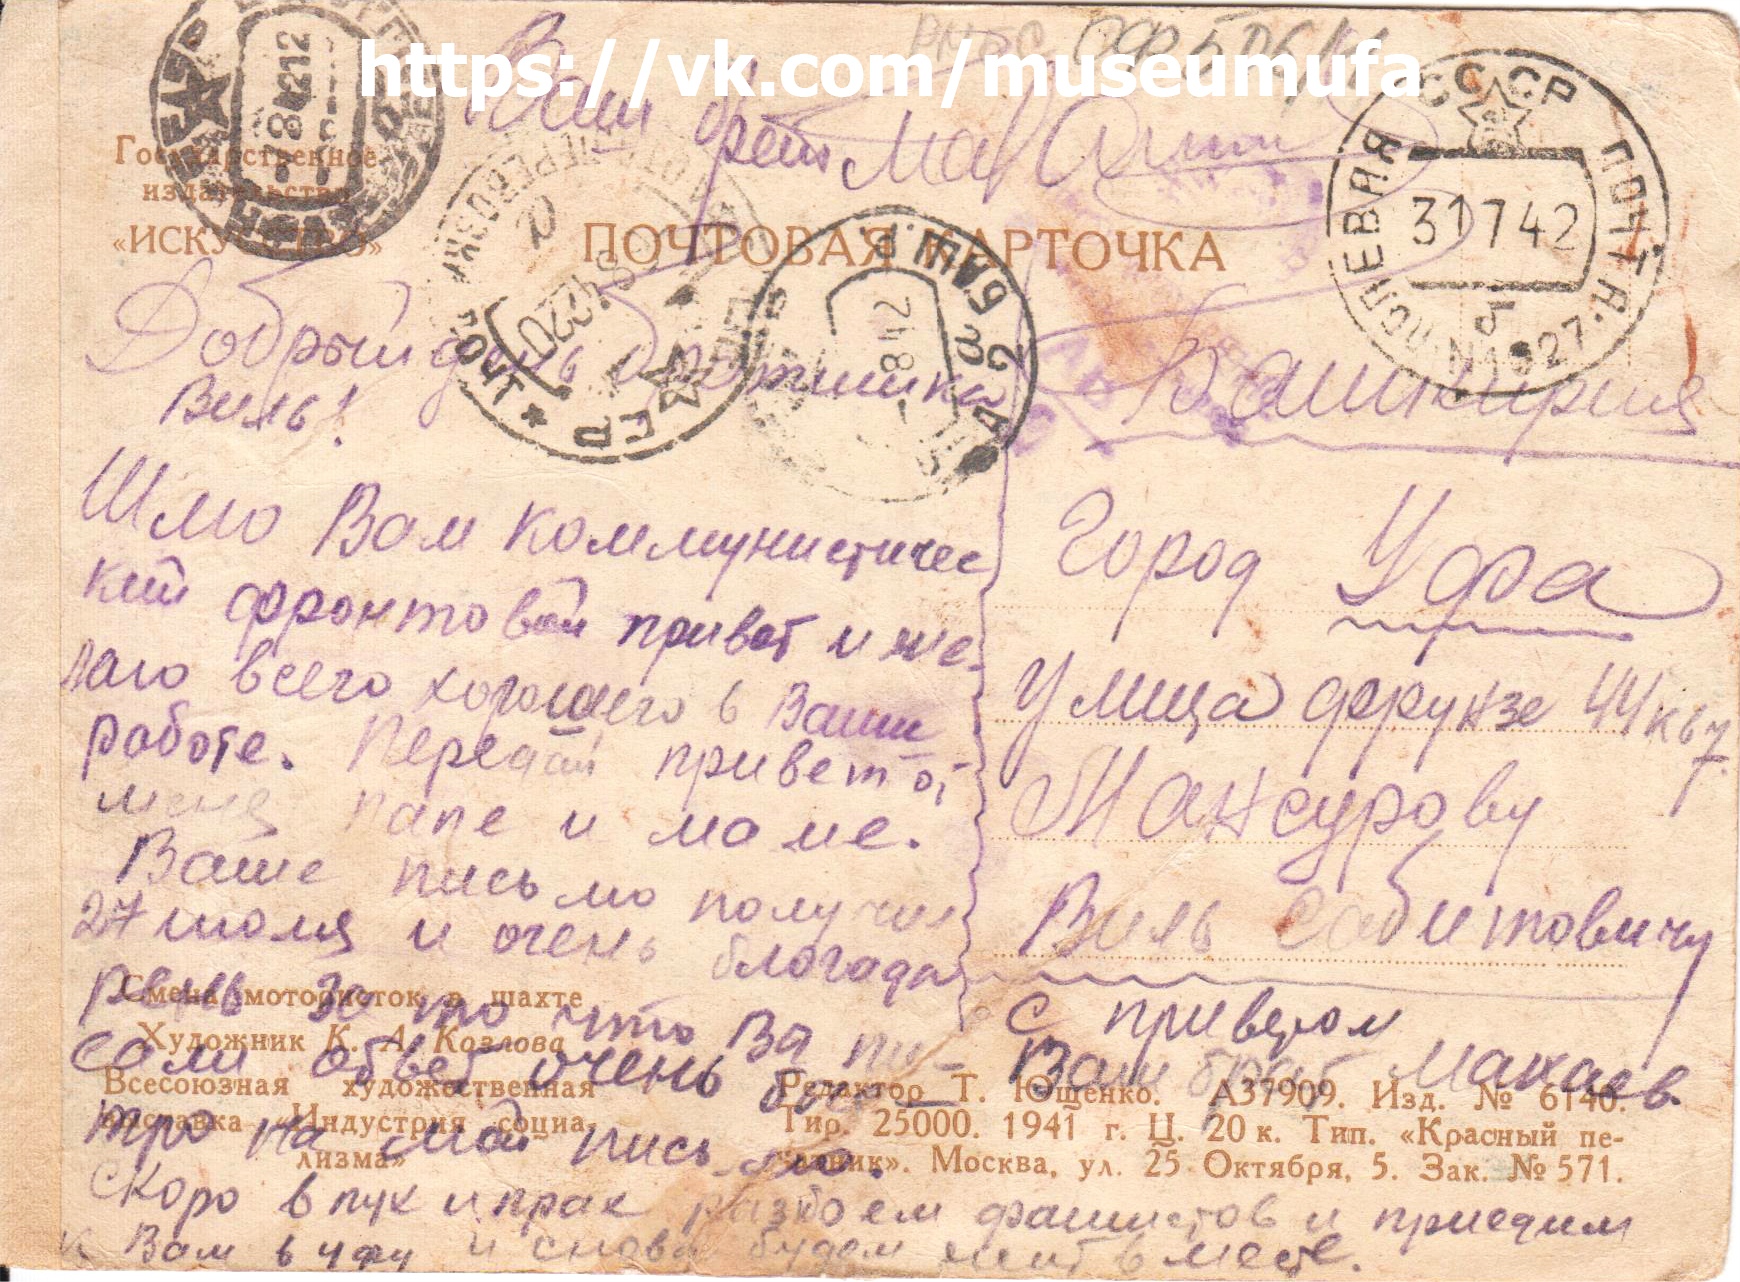 https://vk.com/museumufa
Ваш брат
Государственное
издательство
«ИСКУССТВО»
ПОЧТОВАЯ КАРТОЧКА
СССР ПОЛЕВАЯ ПОЧТА
31 7 42
N 1027
Добрый день братишка
Виль!
Шлю Вам коммунистичес
кий фронтовой привет и же-
лаю всего хорошего в Ваши
работе. Передай привет от
меня папе и маме.
Ваше письмо получил
27 июля и очень благода
рень за то что Ва пи-
сали обвет очень быс-
тро на мой письмо.
Скоро в пух и прах разбоем фашистов и приедим
к Вам в Уфу и снова будем жит вместе.
Башкирия
Город Уфа
Улица Фрунзе 44 кв 7
Мансурову
Виль Сабитовичу
с приветом
Ваш брат Махаев.
Смена мотористок в шахте
Художник К. А. Козлова
Всесоюзная художественная
выставка «Индустрия социа-
лизма»
Редактор Т. Ющенко. А37909. Изд. № 6140.
Тир. 25000. 1941 г. Ц. 20 к. Тип. «Красный пе-
чатник». Москва, ул. 25 Октября, 5. Зак. № 571.